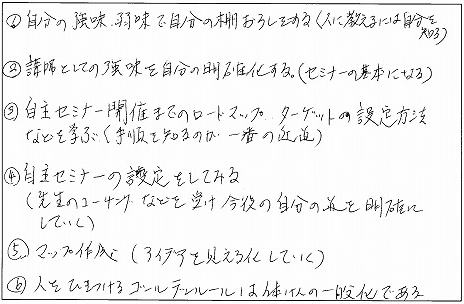 ① 自分の強味、弱味で自分の棚おろしをする(人に教えるには自分を
知る)
② 講師としての強味を自分の明確化する。(セミナーの基本になる)
③ 自主セミナー開催までのロードマップ、ターゲットの設定方法
などを学ぶ(手順を知るのが一番の近道)
④ 自主セミナーの設定をしてみる
(先生のコーチングなどを受け今後の自分の道を明確に
していく)
⑤ マップ作成 (アイデアを見える化していく)
⑥ 人をひきつけるゴールデンルールは の一般化である